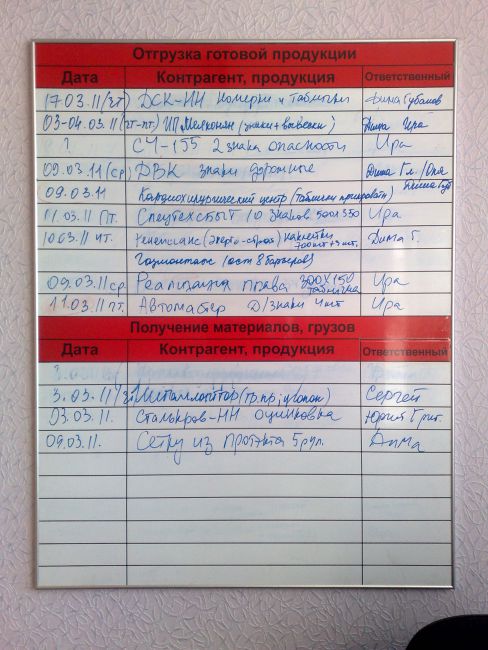 Отгрузка готовой продукции
Дата Контрагент, продукция Ответственный
17.03.11 (чт) ДСК-НН номерки и таблички Дима Губанов
03-04.03.11 (чт-пт) ИП (знаки + вывески) Дима Ира
? СЧ-155 2 знака опасности Ира
09.03.11 (ср) ДВК знаки дорожные Дима Гл./Оля
09.03.11 Кардиохирургический центр (таблички приварать)
11.03.11 пт. Спецтехстыт 10 знаков 500х350 Ира
10.03.11 чт. (Энерго-строй) наклейки 700шт+3шт. Дима Г.
Газмонтаж (ост 8 барьеров)
09.03.11 ср Реализация права 300х150 табличка Ира
11.03.11 пт. Автомастер Д/знаки 4шт Ира
Получение материалов, грузов
Дата Контрагент, продукция Ответственный
3.03.11 (чт) Металлоптторг (тр. пр., уголок) Сергей
03.03.11. Сталькров-НН оцинковка Юрий Григ.
09.03.11. Сетку из 5 рул. Дима